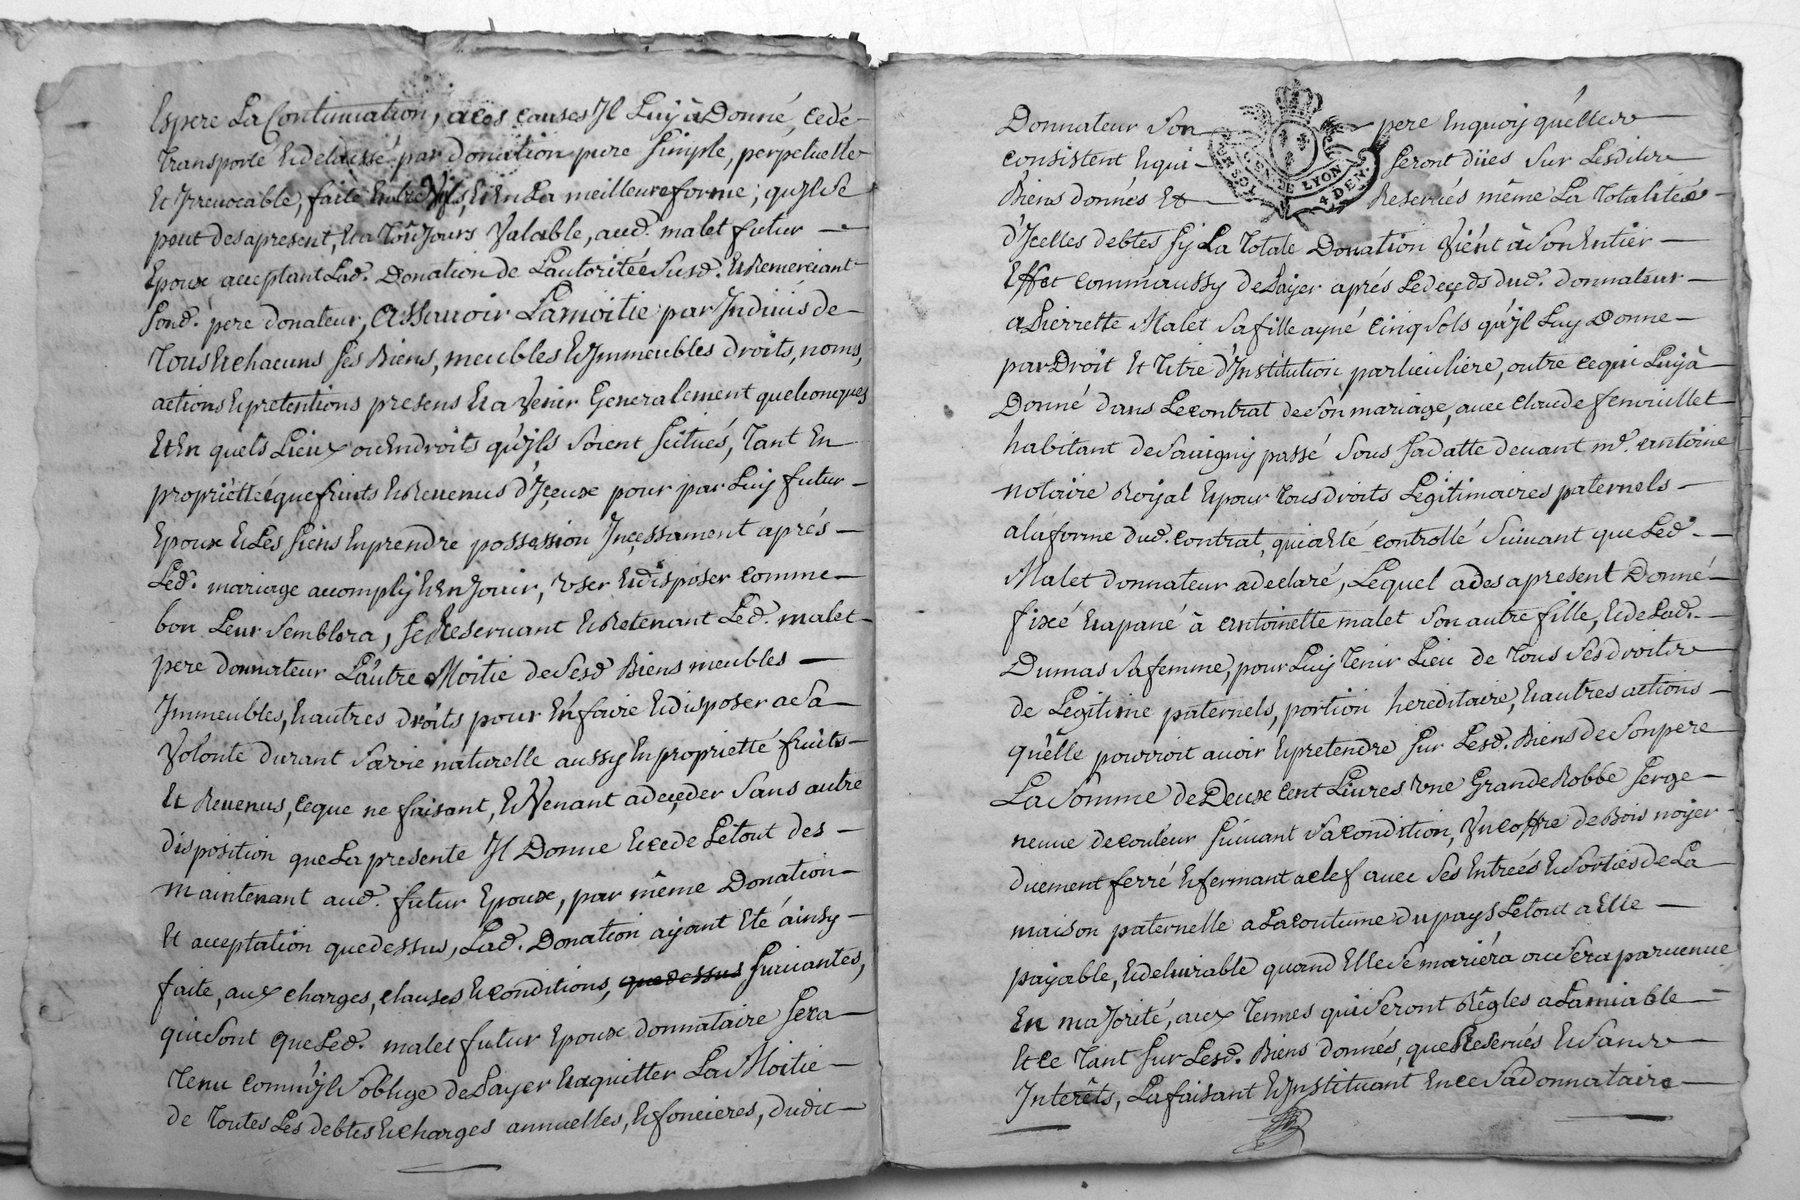 Espere La Continuation, a ces causes Jl Luy à Donné, Cedé
transporté Et delaissé par donation pure Simple, perpetuelle
Et Jrrevocable, faite Entre Vifs, Et En La meilleure forme, qu'jl se
peut des apresent, Et a toûjours Valable, aud. malet futur
Epoux acceptant Lad. Donation de Lautoritée Susd. Et Remerciant
Sond. pere donateur, Assavoir La moitie par Jndivis de
tous Et chacuns ses Biens, meubles Et Jmmeubles droits, noms,
actions Et pretentions presens Et a Venir Generalement quelconques
Et En quels Lieux ou Endroits qu'jls soient scitués, tant En
proprietteé que fruits Et Revenus d'Jçeux pour par Luy futur
Epoux Et Les siens En prendre possession Jnçessament aprés
Led. mariage accomply Et En Jouir, User Et disposer comme
bon Leur Semblera, se Reservant Et Retenant Led. malet
pere donnateur L'autre Moitie de Sesd Biens meubles
Jmmeubles, Et autres droits pour En faire Et disposer a Sa
Volonté durant Sa vie naturelle aussy En proprietté fruits
Et Revenus, Ce que ne faisant, Et Venant a deçeder Sans autre
disposition que La presente Jl Donne Et cede Le tout des
maintenant aud. futur Epoux, par même Donation
Et acceptation que dessus, Lad. Donation ayant Eté ainsy
faite, aux charges, clauses Et conditions, que dessus suivantes,
qui sont que Led. malet futur Epoux donnataire sera
tenu comm'jl S'oblige de Payer Et aquitter La Moitie
de toutes Les debtes Et charges annuelles, Et foncieres, dudit
Donnateur Son pere En quoy qu'elles
consistent Et qui seront dües sur Lesdits
Biens donnés Et Reservés même La totalitée
d'Jcelles debtes sy La totale Donation Vient à Son Entier
Effet comm'aussy de Payer aprés Le deçeds dud. donnateur
a Pierrette Malet sa fille ayné Cinq Sols qu'jl Luy Donne
par Droit Et titre d'Jnstitution particuliere, outre ce qui Luy à
Donné dans Le contrat de son mariage, avec Claude fenouillet
habitant de Savigny passé Sous sa datte devant me. antoine
notaire Royal Et pour tous droits Legitimaires paternels
a la forme dud. contrat, qui a Eté controllé Suivant que Led.
Malet donnateur a declaré, Lequel a des apresent Donné
fixé Et apané à antoinette malet Son autre fille, Et de Lad.
Dumas sa femme, pour Luy tenir Lieu de tous ses droits
de Legitime paternels, portion hereditaire, Et autres actions
qu'elle pourroit avoir Et pretendre sur Lesd. Biens de Son pere
La Somme de Deux Cent Livres Une Grande Robbe serge
neuve de couleur suivant Sa condition, Un coffre de Bois noyer
duement ferré Et fermant a clef avec Ses Entrées Et Sorties de La
maison paternelle a La coutume du pays Le tout a Elle
payable, Et delivrable quand Elle Se mariéra ou Sera parvenue
En maJorité, aux termes qui Seront Réglés a Lamiable
Et ce tant sur Lesd. Biens donnés, que Reservés Et Sans
Jnterêts, La faisant Et Jnstituant En ce Sa donnataire
GEN. DE LYON
UN SOL 4 DEN.